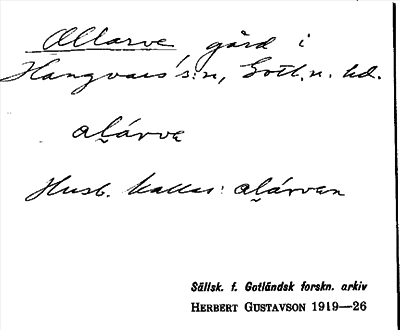 Allarve, gård i
Hangvars s:n, Gotl. n. hd.
alárva
Husb. kallas: alárvan
Sällsk. f. Gotländsk forskn. arkiv
HERBERT GUSTAVSON 1919—26